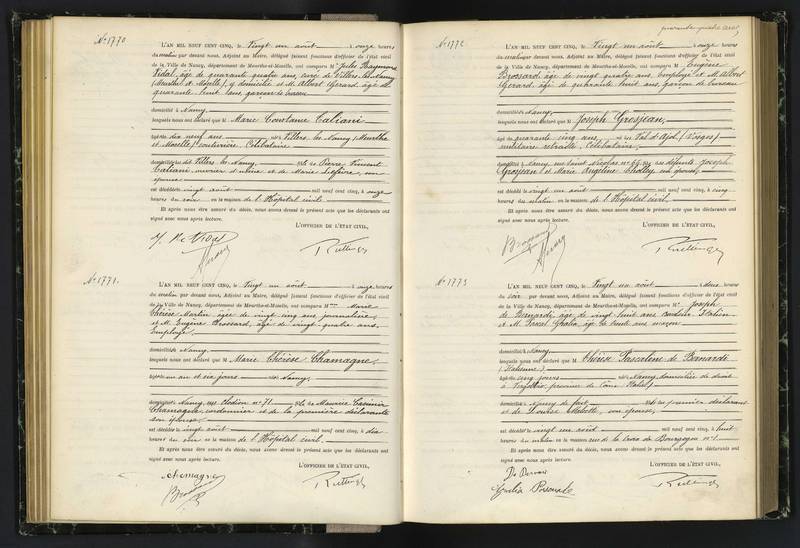 N° 1770
L'AN MIL NEUF CENT CINQ, le Vingt un août à onze heures
du matin par devant nous, Adjoint au Maire, délégué faisant fonctions d'officier de l'état civil
de la Ville de Nancy, département de Meurthe-et-Moselle, ont comparu M. Jules Raymond
Vidal, âgé de quarante quatre ans, curé de Villers-les-Nancy
(Meurthe et Moselle), y domicilié et M. Albert Gérard âgé de
quarante huit ans garçon de bureau
domicilié à Nancy,
lesquels nous ont déclaré que M Marie Constance Caliani
âgée dix neuf ans née Villers les Nancy (Meurthe
et Moselle) ouvrière Célibataire
domiciliée dit Villers les Nancy, fille de Pierre Vincent
Caliani, ouvrier d'usine et de Marie Lefèvre, son
épouse
est décédée le vingt août mil neuf cent cinq, à onze
heures du soir en la maison de l'Hôpital civil
Et après nous être assuré du décès, nous avons dressé le présent acte que les déclarants ont
signé avec nous après lecture.
L'OFFICIER DE L'ÉTAT CIVIL,
N° 1771.
L'AN MIL NEUF CENT CINQ, le Vingt un août à onze heures
du matin par devant nous, Adjoint au Maire, délégué faisant fonctions d'officier de l'état civil
de la Ville de Nancy, département de Meurthe-et-Moselle, ont comparu Mme Marie
Thérèse Martin âgée de vingt cinq ans, journalière
et M. Eugène Brossard, âgé de vingt quatre ans,
employé
domiciliés à Nancy
lesquels nous ont déclaré que M Marie Thérèse Chamagne,
âgée un an et six jours née Nancy,
domiciliée à Nancy, rue Clodion n° 71 fille de Maurice Casimir
Chamagne, cordonnier et de la première déclarante
son épouse
est décédée le vingt août mil neuf cent cinq, à dix
heures du soir en la maison de l'Hôpital civil.
Et après nous être assuré du décès, nous avons dressé le présent acte que les déclarants ont
signé avec nous après lecture.
L'OFFICIER DE L'ÉTAT CIVIL,
N° 1772
L'AN MIL NEUF CENT CINQ, le Vingt un août à onze heures
du matin par devant nous, Adjoint au Maire, délégué faisant fonctions d'officier de l'état civil
de la Ville de Nancy, département de Meurthe-et-Moselle, ont comparu M Eugène
Brossard âgé de vingt quatre ans, Employé et M. Albert
Gérard âgé de quarante huit ans, garçon de bureau
domicilié à Nancy,
lesquels nous ont déclaré que M Joseph Grosjean,
âgé quarante cinq ans, né Val d'Ajol (Vosges)
militaire retraité, Célibataire,
domicilié à Nancy, rue Saint Nicolas n° 64, fils des défunts Joseph
Grosjean et Marie Angéline Cholley son épouse,
est décédé le vingt un août mil neuf cent cinq, à cinq
heures du matin en la maison de l'Hôpital civil,
Et après nous être assuré du décès, nous avons dressé le présent acte que les déclarants ont
signé avec nous après lecture.
L'OFFICIER DE L'ÉTAT CIVIL,
N° 1773
L'AN MIL NEUF CENT CINQ, le Vingt un août à deux heures
du soir par devant nous, Adjoint au Maire, délégué faisant fonctions d'officier de l'état civil
de la Ville de Nancy, département de Meurthe-et-Moselle, ont comparu M. Joseph
de Bernardi, âgé de vingt huit ans Italien
et M. âgé de trente ans maçon
domiciliés à Nancy
lesquels nous ont déclaré que M Thérèse Pascaline de Bernardi
(Italienne)
âgée cinq jours née Nancy, domiciliée de droit
à province de Italie)
domiciliée à Nancy de fait, fille du premier déclarant
et de Louise son épouse,
est décédée le vingt un août mil neuf cent cinq, à huit
heures du matin en la maison rue de la Croix de Bourgogne n° 1
Et après nous être assuré du décès, nous avons dressé le présent acte que les déclarants ont
signé avec nous après lecture.
L'OFFICIER DE L'ÉTAT CIVIL,